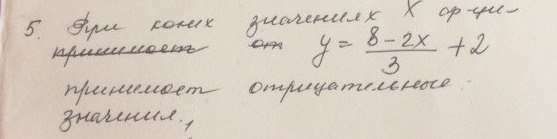 5. При каких значениях x ф-ци-
принимает от y = (8-2x)/3 + 2
принимает отрицательные
значения.